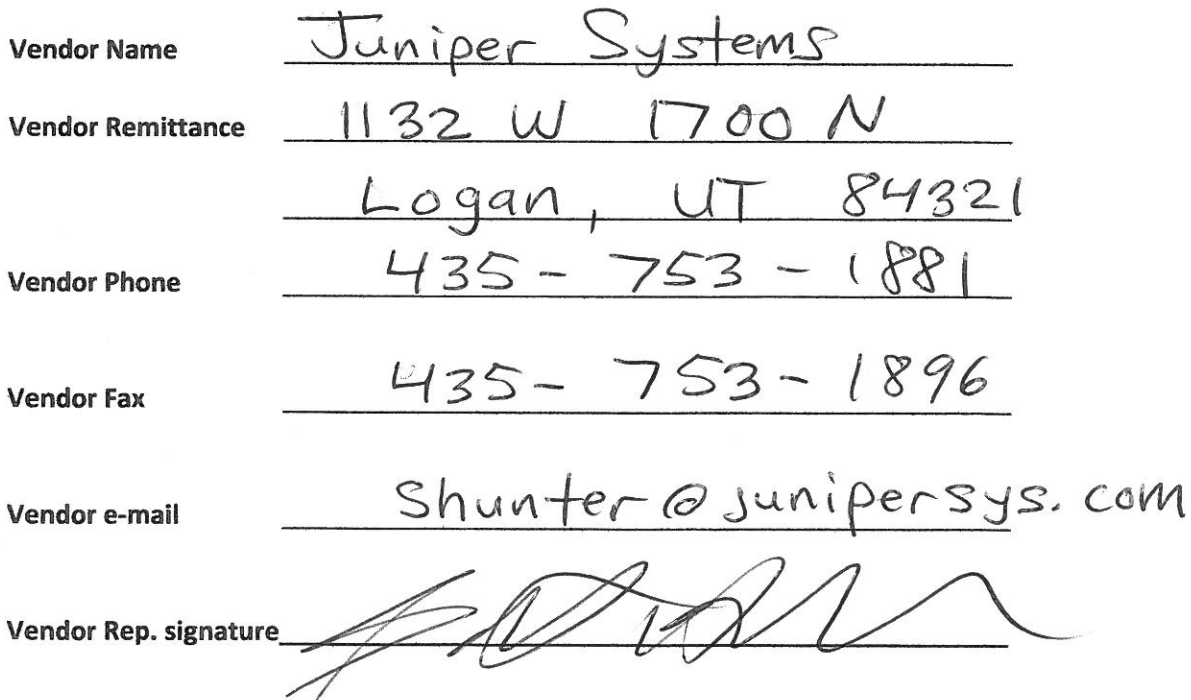 Vendor Name Juniper Systems
Vendor Remittance 1132 W 1700 N
Logan, UT 84321
Vendor Phone 435-753-1881
Vendor Fax 435-753-1896
Vendor e-mail Shunter@junipersys.com
Vendor Rep. signature